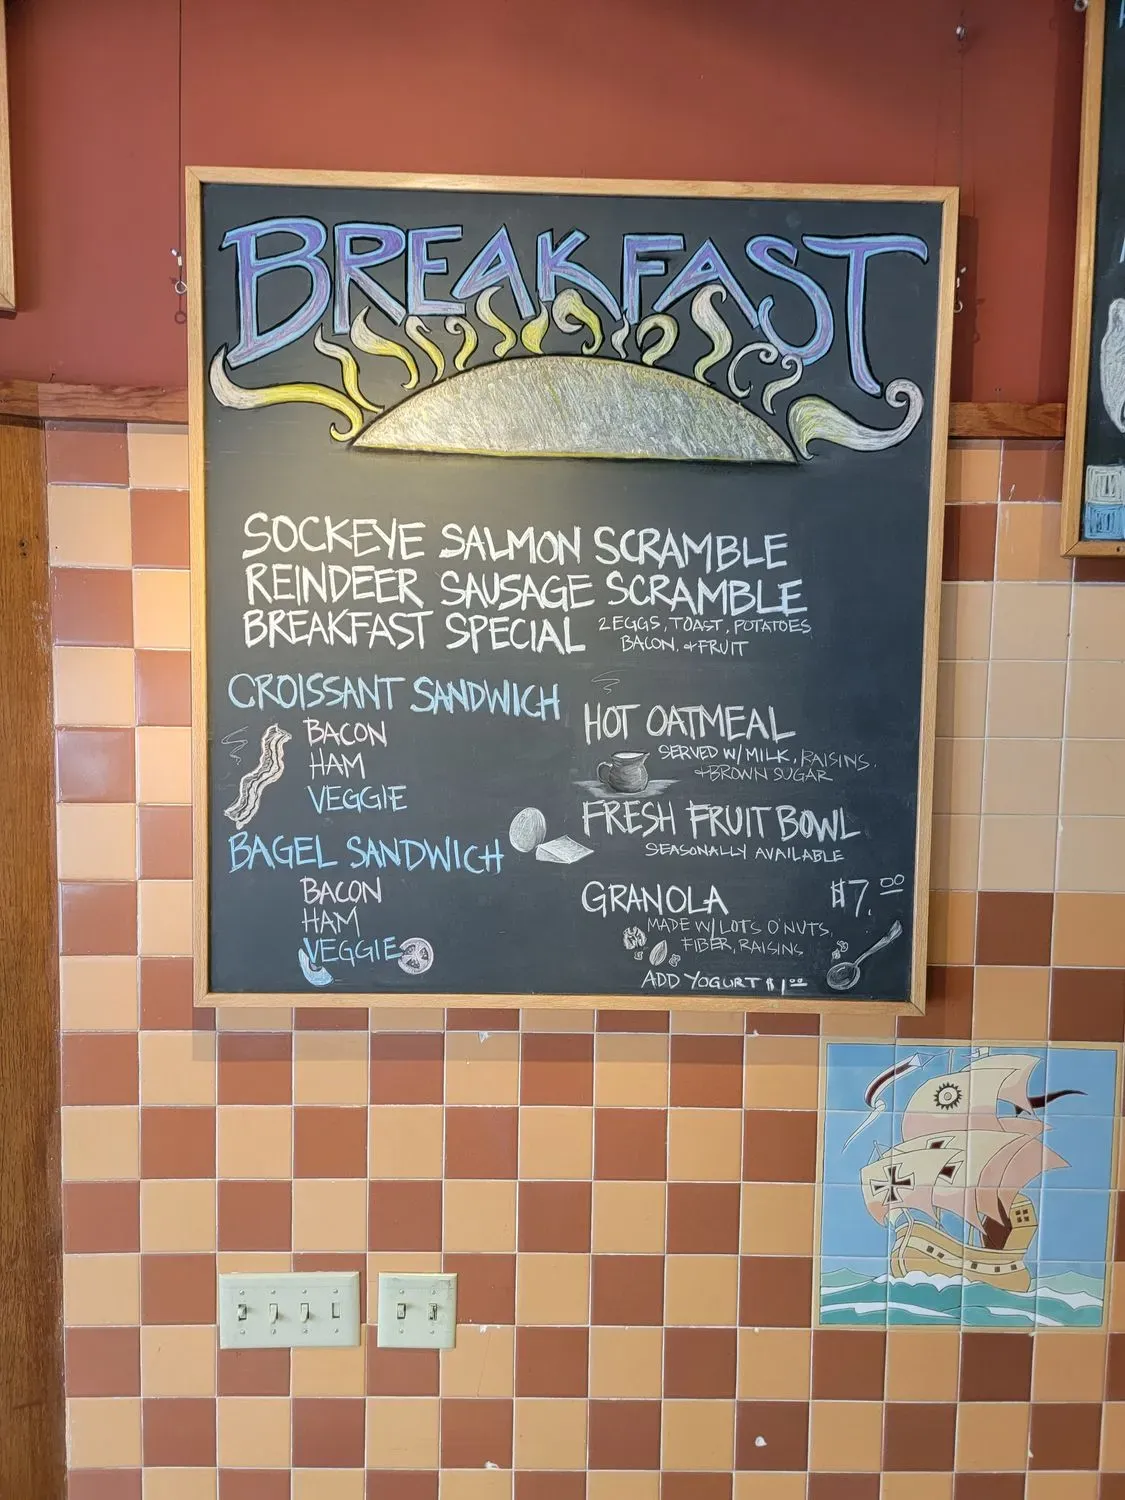 BREAKFAST
SOCKEYE SALMON SCRAMBLE
REINDEER SAUSAGE SCRAMBLE
BREAKFAST SPECIAL 2 EGGS, TOAST, POTATOES
BACON, + FRUIT
CROISSANT SANDWICH
BACON
HAM
VEGGIE
BAGEL SANDWICH
BACON
HAM
VEGGIE
HOT OATMEAL
SERVED W/ MILK, RAISINS,
+ BROWN SUGAR
FRESH FRUIT BOWL
SEASONALLY AVAILABLE
GRANOLA $7.00
MADE W/ LOTS O'NUTS,
FIBER, RAISINS
ADD YOGURT $1.00